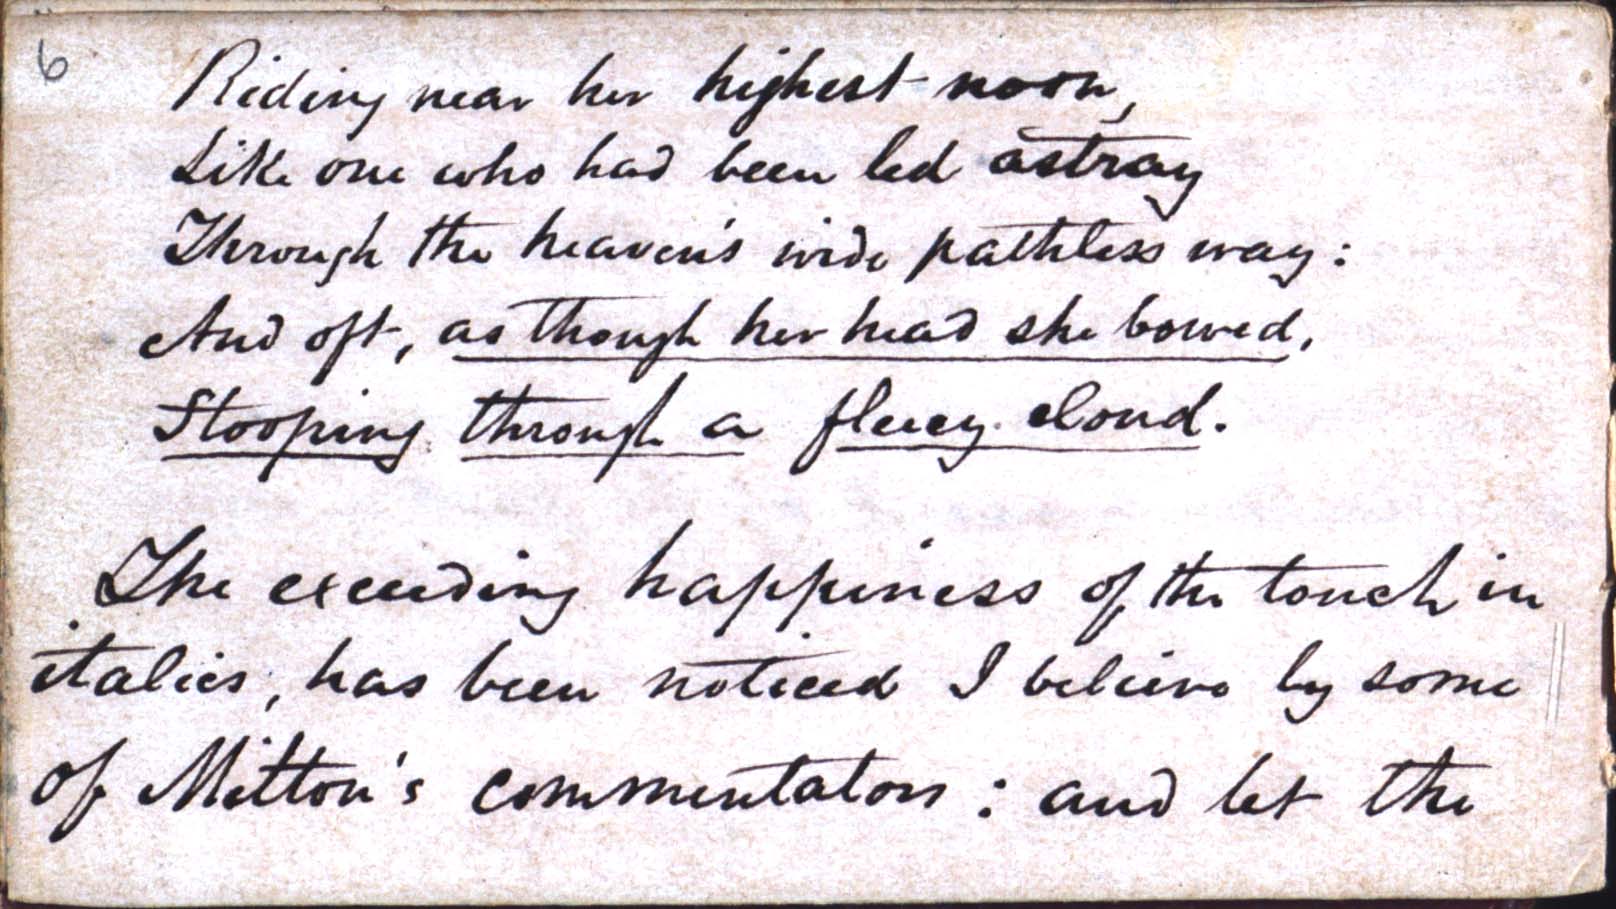 6
Riding near her highest noon,
Like one who had been led astray
Through the heaven's wide pathless way:
And oft, as though her head she bowed,
Stooping through a fleecy cloud.
The exceeding happiness of the touch in
italics, has been noticed I believe by some
of Milton's commentators: and let the